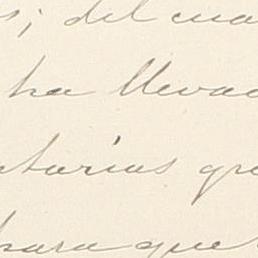 s; del cua
ha lleva
tarias que
para que